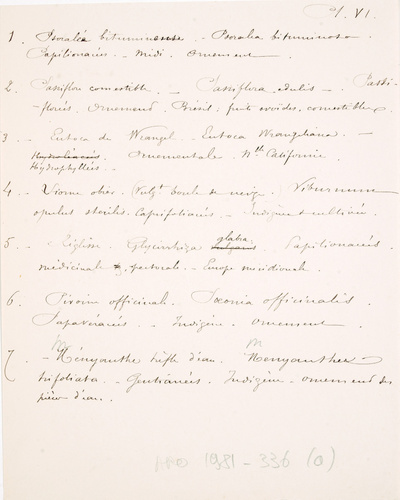 VI.
1. Psoralée bitumineuse - Psoralea bituminosa.
Papilionacées. - Midi. Ornement.
2. Passiflore comestible. - Passiflora edulis. - Passi-
florées. Ornement. Brésil, fruits ovoïdes, comestibles.
3 - Eutoca de Wrangel. Eutoca Wrangeliana. -
Hydroléacées Ornementale. Nlle Californie.
Hydrophyllées.
4 - Viorne obier. (Vulgt boule de neige. Viburnum
opulus sterilis. Caprifoliacées. - Indigène et cultivée.
5 - Réglisse. Glycyrrhiza vulgaris glabra. Papilionacées.
médicinale & pectorale. - Europe méridionale.
6. Pivoine officinale. Pæonia officinalis.
Papavéracées. - Indigène. Ornement.
7. - Ményanthe trèfle d'eau. Menyanthes
trifoliata. - Gentianées. Indigène. - ornement des
pièces d'eau.
1981-336 (a)